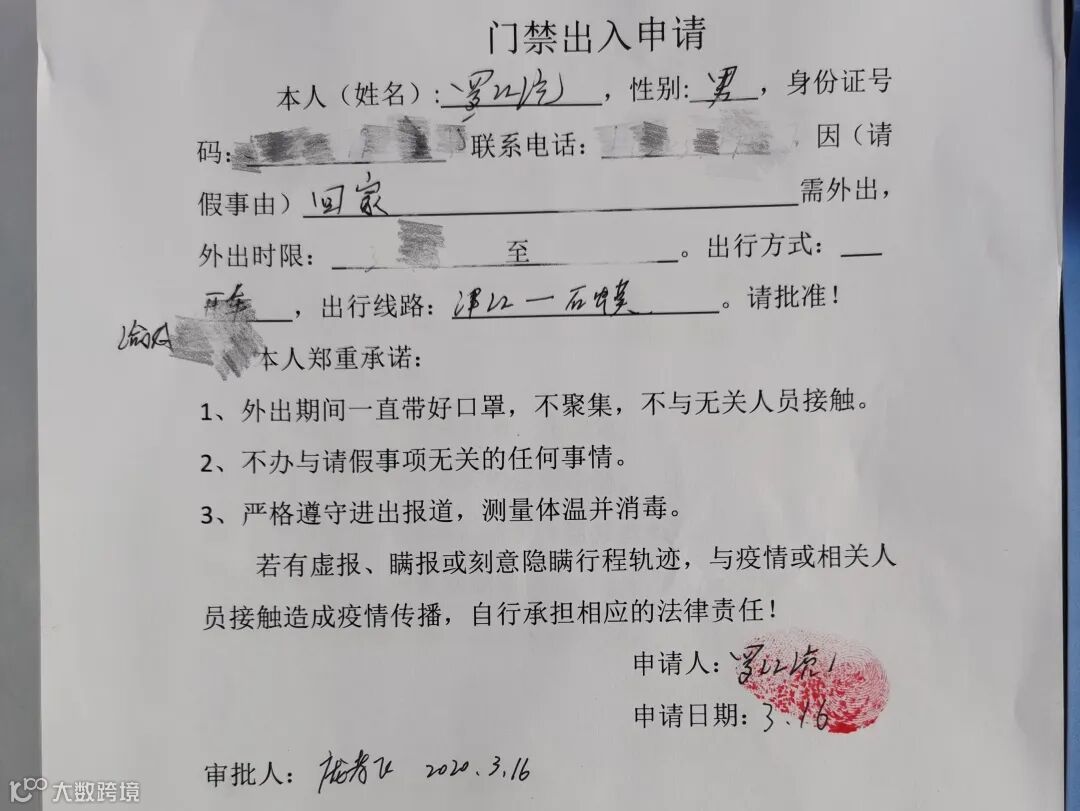 门禁出入申请
本人（姓名）: ，性别: 男 ，身份证号
码: 联系电话: 因（请
假事由）回家 需外出，
外出时限: 至 。出行方式:
，出行线路: 。请批准！
本人郑重承诺:
1、外出期间一直带好口罩，不聚集，不与无关人员接触。
2、不办与请假事项无关的任何事情。
3、严格遵守进出报道，测量体温并消毒。
若有虚报、瞒报或刻意隐瞒行程轨迹，与疫情或相关人
员接触造成疫情传播，自行承担相应的法律责任！
申请人:
申请日期: 3.16
审批人: 2020.3.16
大数跨境